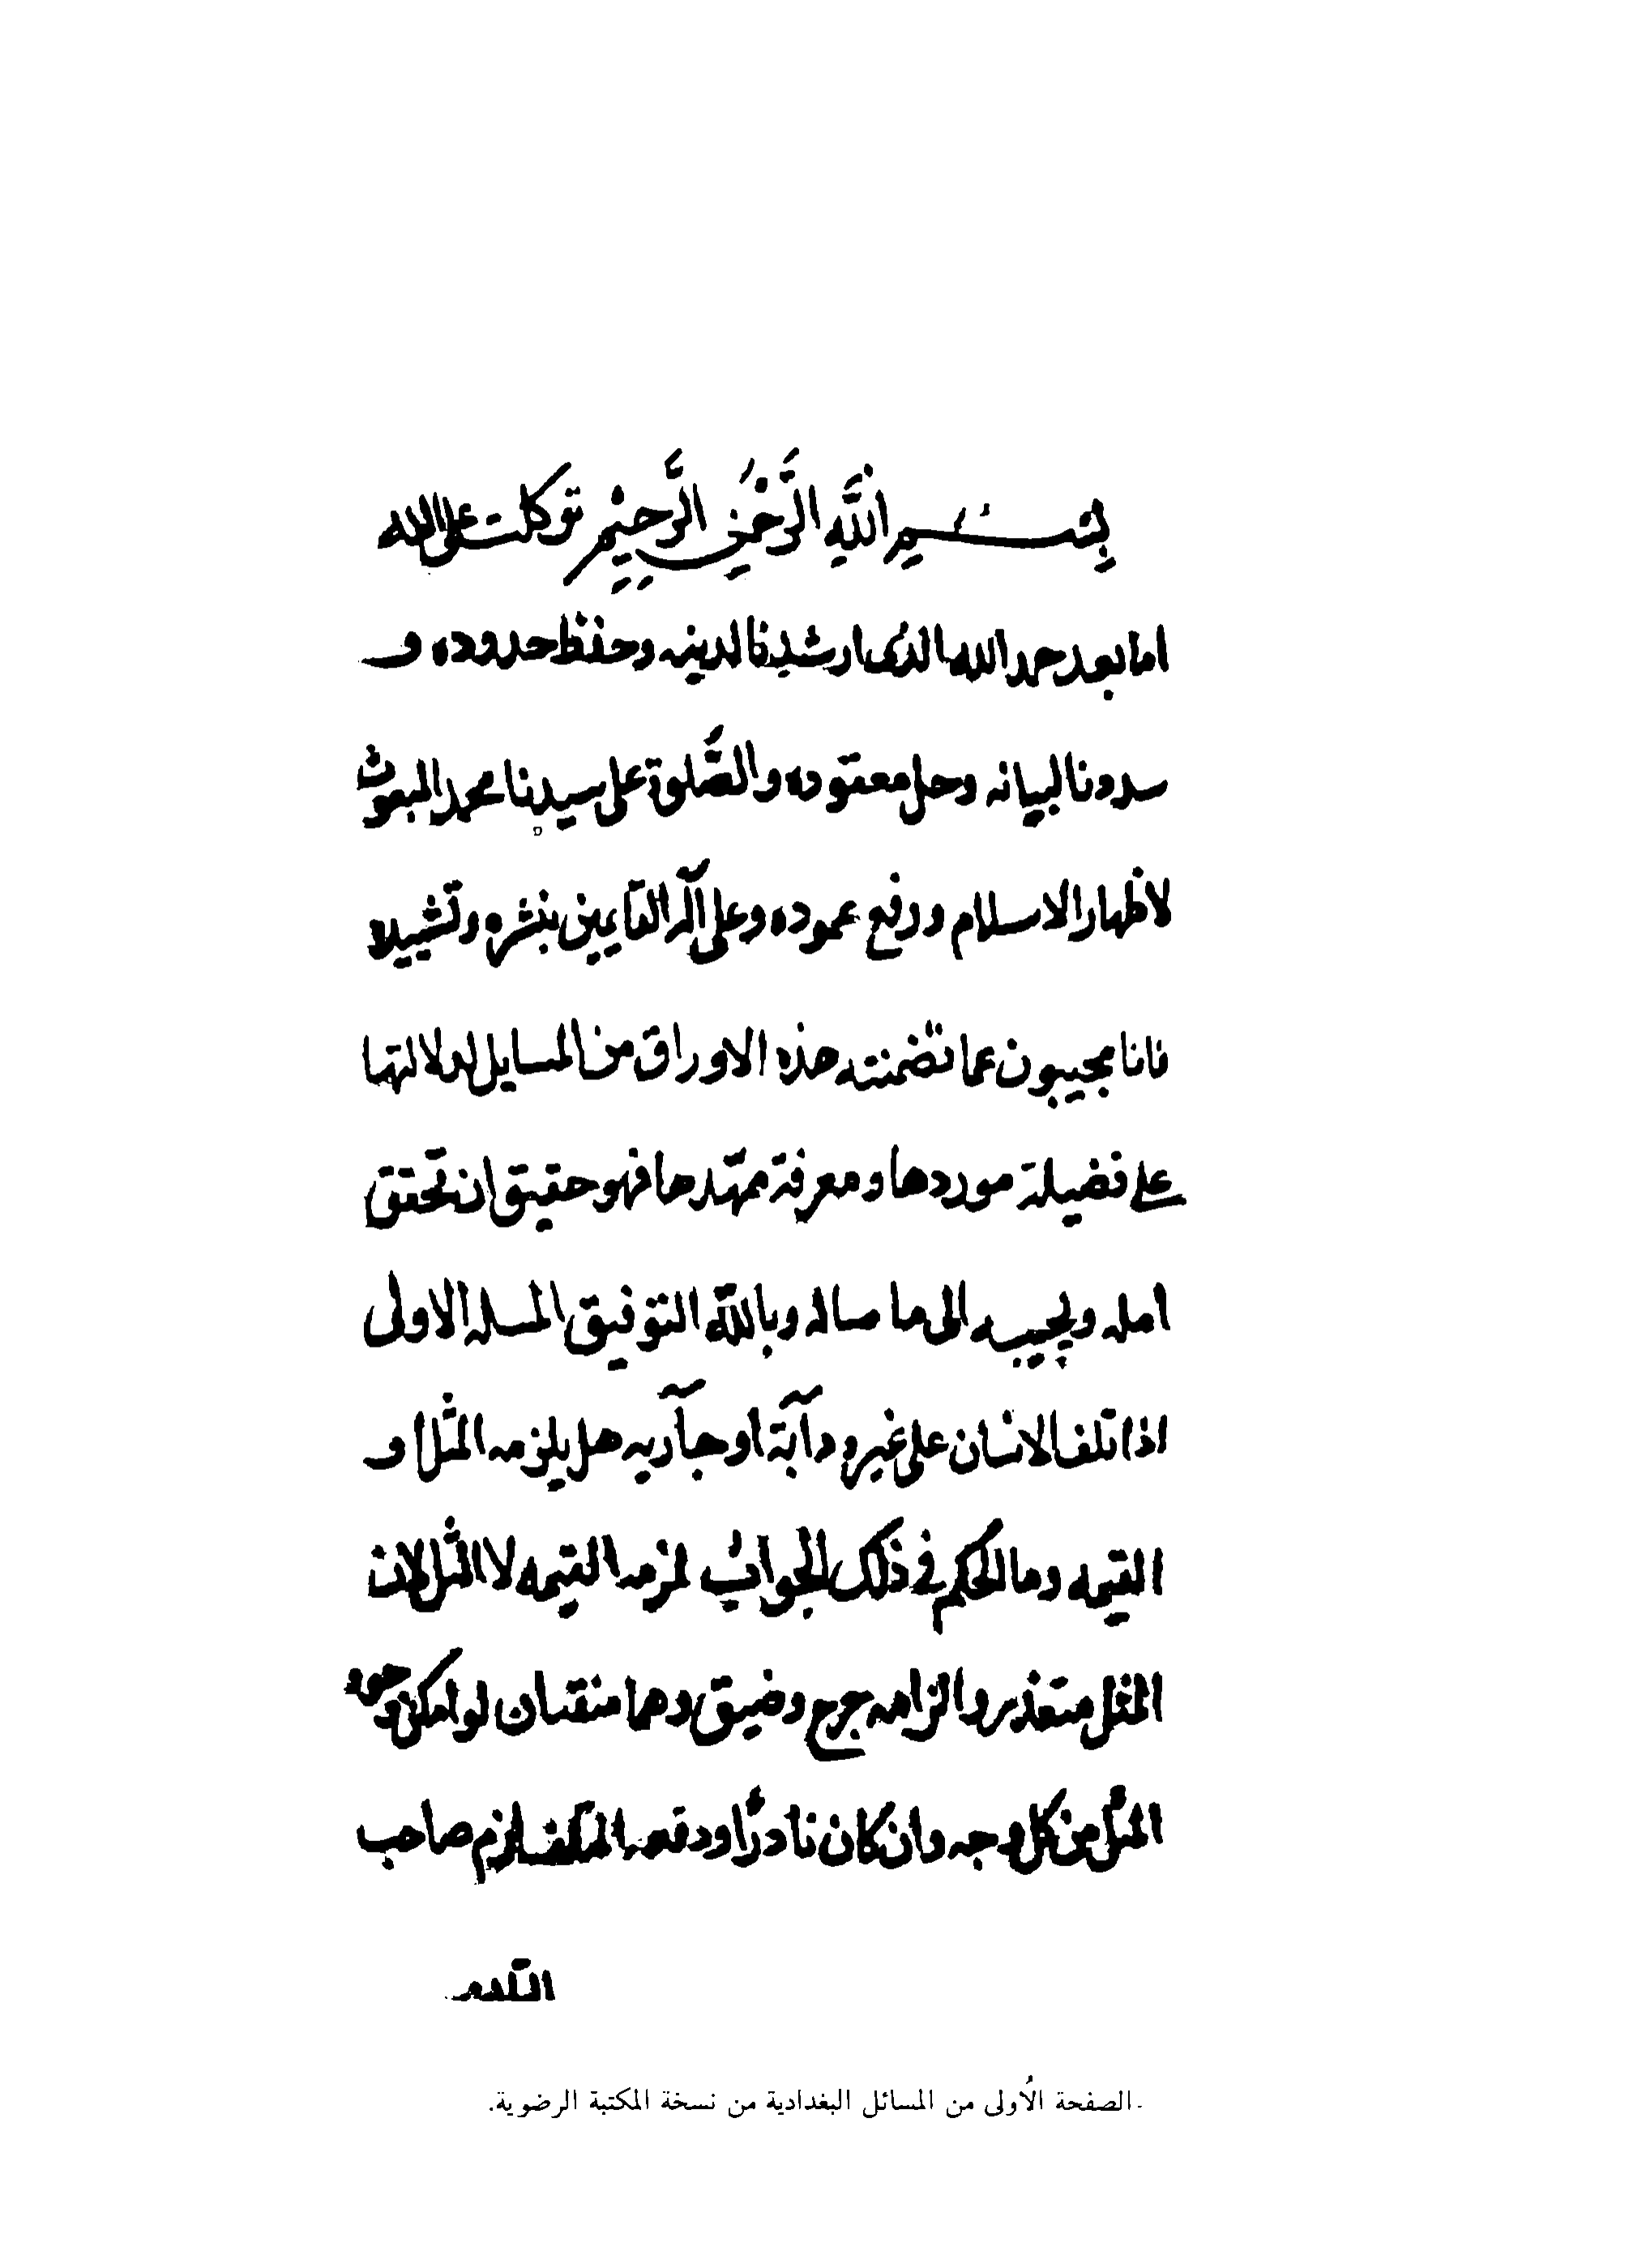 بِسْمِ اللَّهِ الرَّحْمٰنِ الرَّحِيْمِ توكلت على الله
اما بعد حمد الله الذى ارشدنا لدينه وحفظ حدوده و
سددنا لبيانه وحل معقوده والصَّلوة على سيدنا محمد المبعوث
لاظهار الاسلام ورفع عموده وعلى آله القآيمين بنشره وتشييده
فانا مجيبون عما تضمنته هذه الاوراق من المسايل لدلالتها
على فضيلة موردها ومعرفة ممهّدها فهو حقيق ان تحقق
امله ويجيبه الى ما ساله وبالله التوفيق المسله الاولى
اذا تلف الانسان على غيره دآبّة او جآريه هل يلزمه المثل او
القيمه وما الحكم فى ذلك الجواب لمزمه القيمه لا المثل لان
المثل متعذر والزامه حرج وضيق وهما منفيان لو امكن وجود
المثل من كل وجه وان كان نادرًا ودفعه المتلف لزم صاحب
التلف
الصفحة الأولى من المسائل البغدادية من نسخة المكتبة الرضوية.